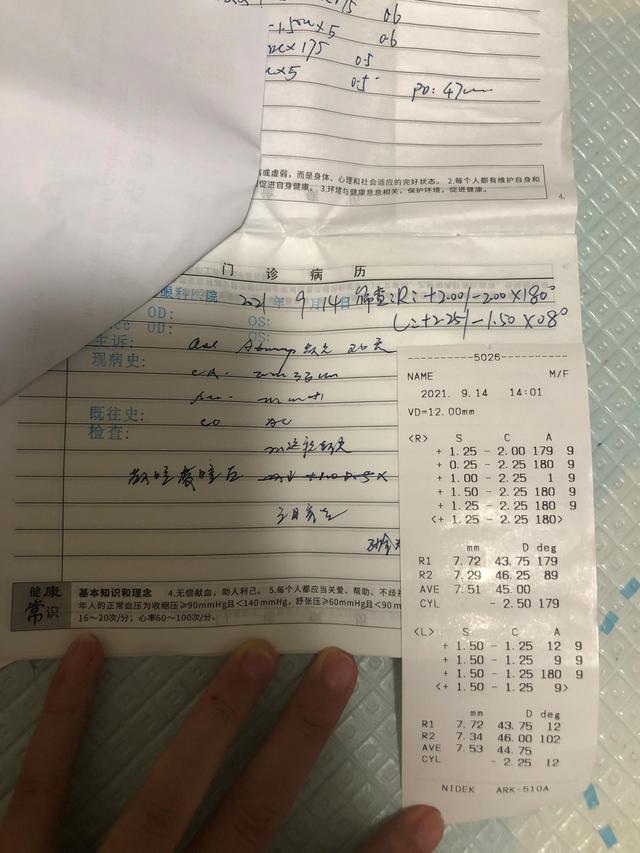 175 0.6
-1.50 × 5 0.6
× 175 0.5
× 5 0.5 PD: 47mm
或虚弱，而是身体、心理和社会适应的完好状态。 2.每个人都有维护自身和
促进自身健康。 3.环境与健康息息相关，保护环境，促进健康。
4.
门 诊 病 历
眼科医院 2021 年 9 月 14 日 筛查: R: +2.00/-2.00×180°
L: +2.25/-1.50×08°
OD: OS:
cc OD: OS:
主诉:
现病史:
既往史:
检查:
健康
常识
基本知识和理念 4.无偿献血，助人利己。 5.每个人都应当关爱、帮助、不歧
年人的正常血压为收缩压≥90mmHg且<140mmHg，舒张压≥60mmHg且<90m
16～20次/分；心率60～100次/分。
----------5026----------
NAME M/F
2021. 9.14 14:01
VD=12.00mm
<R> S C A
+ 1.25 - 2.00 179 9
+ 0.25 - 2.25 180 9
+ 1.00 - 2.25 1 9
+ 1.50 - 2.25 180 9
+ 1.25 - 2.25 180 9
<+ 1.25 - 2.25 180>
mm D deg
R1 7.72 43.75 179
R2 7.29 46.25 89
AVE 7.51 45.00
CYL - 2.50 179
<L> S C A
+ 1.50 - 1.25 12 9
+ 1.50 - 1.25 9 9
+ 1.50 - 1.25 180 9
<+ 1.50 - 1.25 9>
mm D deg
R1 7.72 43.75 12
R2 7.34 46.00 102
AVE 7.53 44.75
CYL - 2.25 12
NIDEK ARK-510A